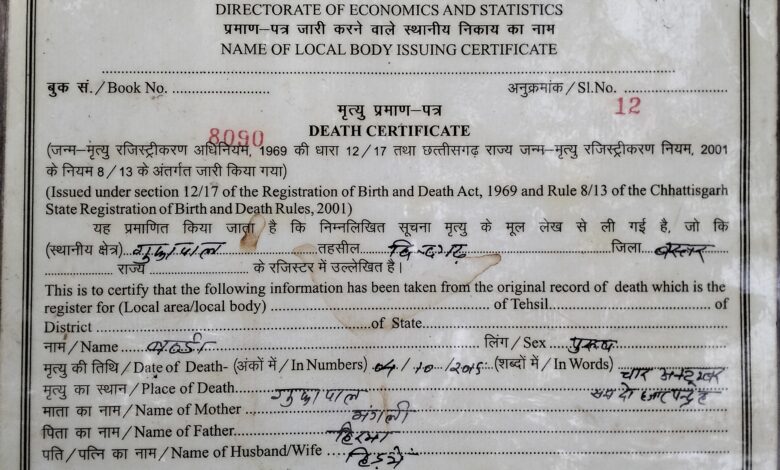 DIRECTORATE OF ECONOMICS AND STATISTICS
प्रमाण–पत्र जारी करने वाले स्थानीय निकाय का नाम
NAME OF LOCAL BODY ISSUING CERTIFICATE
बुक सं. / Book No. ........................ अनुक्रमांक / Sl.No. ........................
12
मृत्यु प्रमाण–पत्र
8090
DEATH CERTIFICATE
(जन्म–मृत्यु रजिस्ट्रीकरण अधिनियम, 1969 की धारा 12 / 17 तथा छत्तीसगढ़ राज्य जन्म–मृत्यु रजिस्ट्रीकरण नियम, 2001
के नियम 8 / 13 के अंतर्गत जारी किया गया)
(Issued under section 12/17 of the Registration of Birth and Death Act, 1969 and Rule 8/13 of the Chhattisgarh
State Registration of Birth and Death Rules, 2001)
यह प्रमाणित किया जाता है कि निम्नलिखित सूचना मृत्यु के मूल लेख से ली गई है, जो कि
(स्थानीय क्षेत्र) तहसील जिला बस्तर
राज्य के रजिस्टर में उल्लेखित है।
This is to certify that the following information has been taken from the original record of death which is the
register for (Local area/local body) of Tehsil of
District of State
नाम / Name लिंग / Sex पुरूष
मृत्यु की तिथि / Date of Death- (अंकों में / In Numbers) 04 / 10 / 2015 (शब्दों में / In Words) चार अक्टूबर
सन दो हजार पन्द्रह
मृत्यु का स्थान / Place of Death
माता का नाम / Name of Mother मंगली
पिता का नाम / Name of Father हिरमा
पति / पत्नि का नाम / Name of Husband/Wife